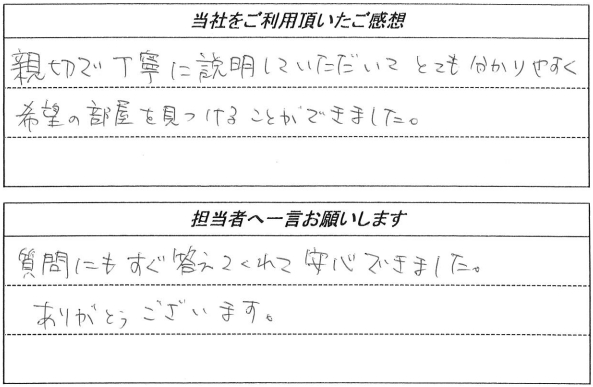 当社をご利用頂いたご感想
親切で丁寧に説明していただいてとても分かりやすく
希望の部屋を見つけることができました。
担当者へ一言お願いします
質問にもすぐ答えてくれて安心できました。
ありがとうございます。